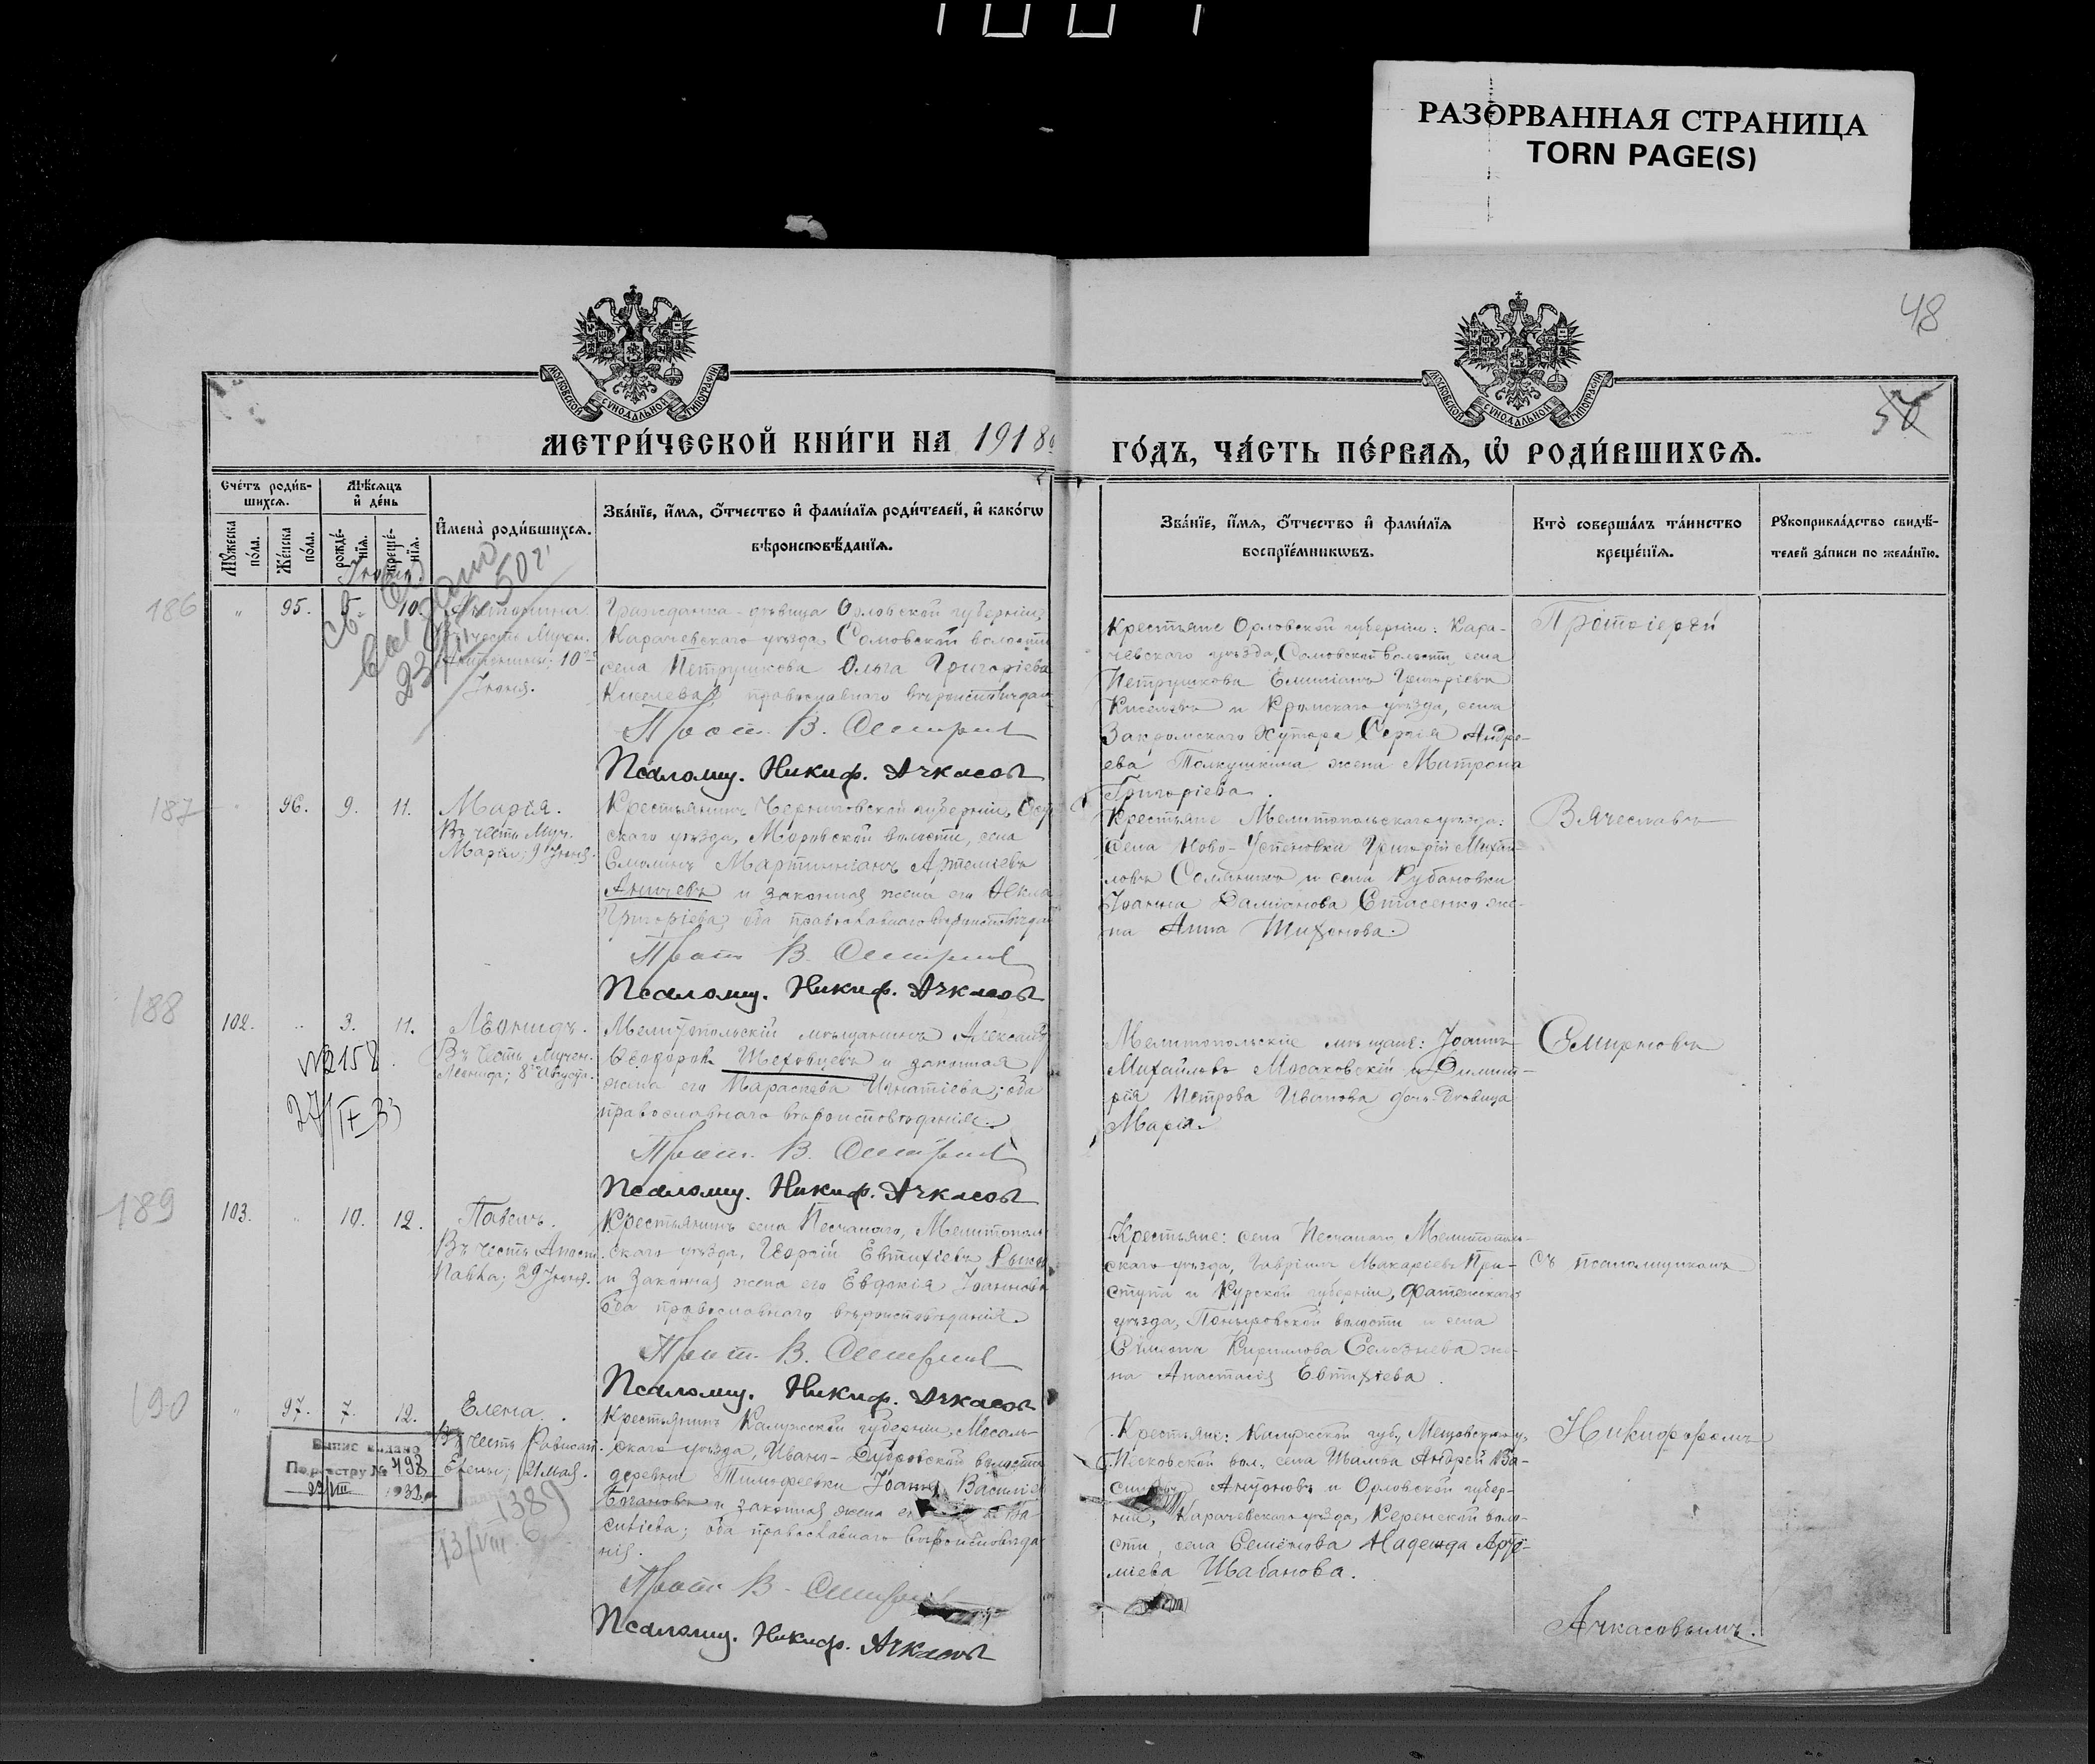 РАЗОРВАННАЯ СТРАНИЦА
TORN PAGE(S)
48
50
МОСКОВСКОЙ СѴНОДАЛЬНОЙ ТИПОГРАФІИ
МОСКОВСКОЙ СѴНОДАЛЬНОЙ ТИПОГРАФІИ
МЕТРИ́ЧЕСКОЙ КНИ́ГИ НА 1918
ГО́ДЪ, ЧА́СТЬ ПЕ́РВАЯ, Ѡ҆ РОДИ́ВШИХСЯ.
Сче́тъ роди́в-
шихся.
Мѣ́сяцъ
и҆ де́нь
Мꙋ́жеска
по́ла.
Же́нска
по́ла.
рожде́-
нїя.
креще́-
нїя.
И҆мена̀ роди́вшихся.
Зва́нїе, и҆́мя, ѻ҆́тчество и҆ фами́лїя роди́телей, и҆ како́гѡ
вѣроисповѣ́данїя.
Зва́нїе, и҆́мя, ѻ҆́тчество и҆ фами́лїя
воспрїе́мникѡвъ.
Кто̀ соверша́лъ та́инство
креще́нїя.
Рꙋкоприкла́дство свидѣ́-
телей за́писи по жела́нїю.
Іюнь
186
95.
5.
10.
Антонина
Въ честь Мучен.
Антонины; 10
Іюня.
Гражданка-дѣвица Орловской губерніи,
Карачевскаго уѣзда, Сомовской волости
села Петрушкова Ольга Григоріева
Киселева, православнаго вѣроисповѣдан
Прот. В. Смирнов
Псаломщ. Никиф. Ачкасов
Крестьяне Орловской губерніи: Кара-
чевскаго уѣзда, Сомовской волости, села
Петрушкова Емиліанъ Григоріевъ
Киселевъ и Кромскаго уѣзда, села
Закромскаго Хутора Сергія Андре-
ева Толкушкина жена Матрона
Григоріева.
Протоіерей
187
96.
9.
11.
Марія.
Въ честь Муч.
Маріи; 9 Іюня.
Крестьянинъ Черниговской губерніи, Осер
скаго уѣзда, Моровской волости, села
Смолинъ Мартиніанъ Артеміевъ
Аничевъ и законная жена его Ѳекла
Григоріева, оба православнаго вѣроисповѣдан
Прот. В. Смирнов
Псаломщ. Никиф. Ачкасов
Крестьяне Мелитопольскаго уѣзда:
села Ново-Успеновки Григорій Михаи-
ловъ Соляникъ и села Рубановки
Іоанна Даміанова Стасенко же-
на Анна Тихонова.
Вячеславъ
188
102.
3.
11.
Леонидъ.
Въ честь Мучен.
Леонида; 8 Августа.
№ 2158
27/IX 33
Мелитопольскій мѣщанинъ Александ
Ѳеодоровъ Шеховцевъ и законная
жена его Параскева Игнатіева; оба
православнаго вѣроисповѣданія.
Прот. В. Смирнов
Псаломщ. Никиф. Ачкасов
Мелитопольскіе мѣщане: Іоаннъ
Михайловъ Мосаковскій и Димит-
рія Петрова Иванова дочь-дѣвица
Марія.
Смирновъ
189
103.
10.
12.
Павелъ.
Въ честь Апост.
Павла; 29 Іюня.
Крестьянинъ села Песчаного, Мелитополь
скаго уѣзда, Георгій Евтихіевъ
и законная жена его Евдокія Іоаннова
оба православнаго вѣроисповѣданія.
Прот. В. Смирнов
Псаломщ. Никиф. Ачкасов
Крестьяне: села Песчаного, Мелитополь-
скаго уѣзда, Гавріилъ Макаріевъ При-
ступа и Курской губерніи, Фатежскаго
уѣзда, Поныровской волости и села
Симеона Кириллова Селезнева же-
на Анастасія Евтихіева.
съ псаломщикомъ
190
97.
7.
12.
Елена.
Въ честь Равноап.
Елены; 21 Мая.
Выпис выдано
По реестру № 498
23/VIII 1932
1389
13/VIII
Крестьянинъ Калужской губерніи, Мосаль-
скаго уѣзда, Ивано-Дубровской волости
деревни Тимофеевки Іоаннъ Василіев
и законная жена
оба православнаго вѣроисповѣда
нія.
Прот. В. Смирнов
Псаломщ. Никиф. Ачкасов
Крестьяне: Калужской губ., Мещовскаго у.
Песковской вол., села Шалова Андрей Ва-
Антоновъ и Орловской губер-
ніи, Карачевскаго уѣзда, волo-
сти, села Семёнова Надежда Арте-
міева Шабанова.
Никифоромъ
Ачкасовымъ.